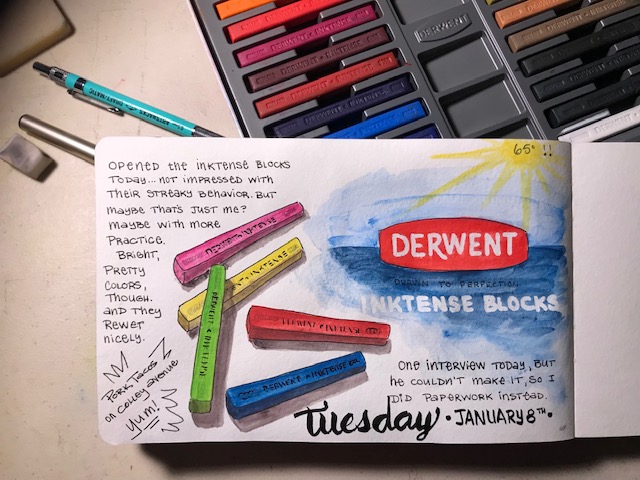 DERWENT
65° !!
OPENED THE INKTENSE BLOCKS
TODAY... NOT IMPRESSED WITH
THEIR STREAKY BEHAVIOR. BUT
MAYBE THAT'S JUST ME?
MAYBE WITH MORE
PRACTICE.
BRIGHT,
PRETTY
COLORS,
THOUGH.
AND THEY
REWET
NICELY.
PORK TACOS
ON COLLEY AVENUE
YUM!
DERWENT
DRAWN TO PERFECTION
INKTENSE BLOCKS
DERWENT INKTENSE
DERWENT INKTENSE
DERWENT • INKTENSE
ONE INTERVIEW TODAY, BUT
HE COULDN'T MAKE IT, SO I
DID PAPERWORK INSTEAD.
Tuesday • JANUARY 8TH •